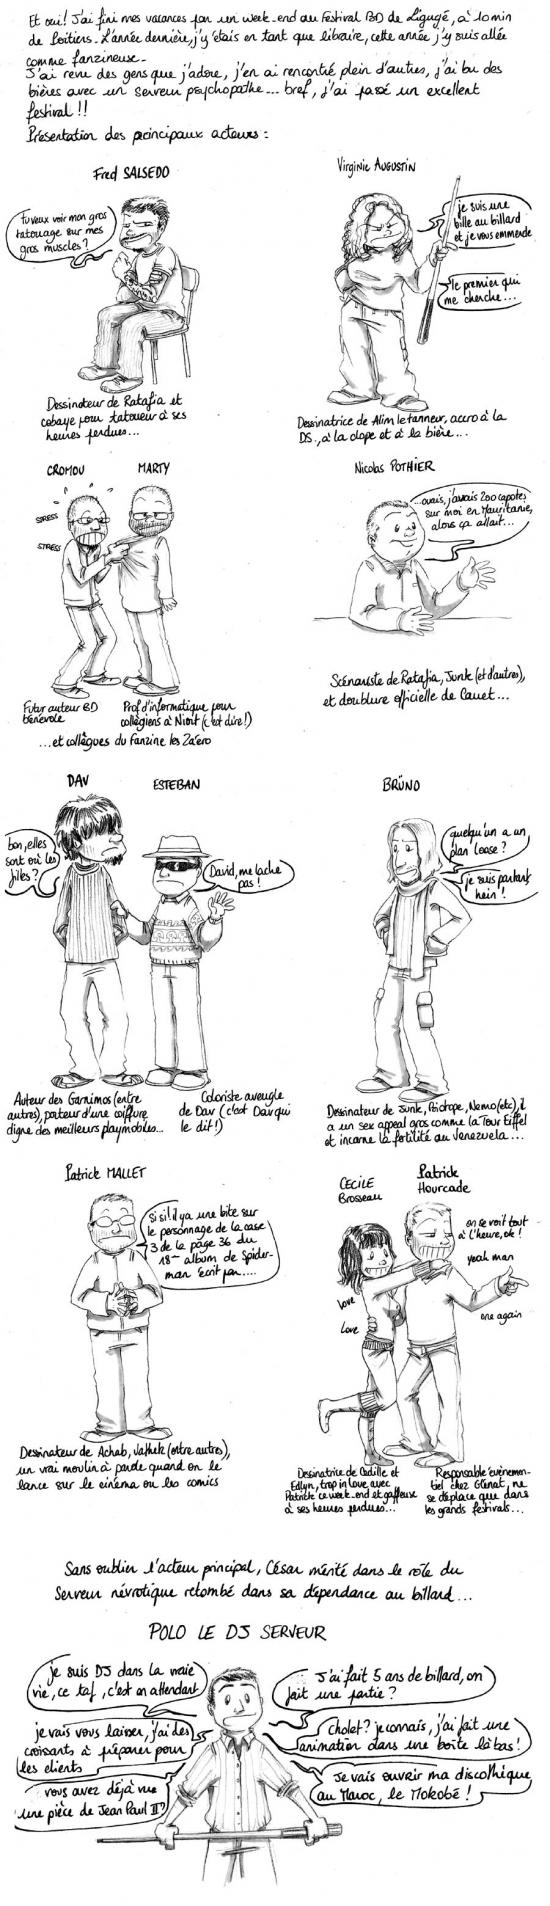 Et oui! J'ai fini mes vacances par un week-end au Festival BD de Ligugé, à 10min
de Poitiers. L'année dernière, j'y étais en tant que libraire, cette année j'y suis allée
comme fanzineuse.
J'ai revu des gens que j'adore, j'en ai rencontré plein d'autres, j'ai bu des
bières avec un serveur psychopathe... bref, j'ai passé un excellent
festival!!
Présentation des principaux acteurs:
Fred SALSEDO
tu veux voir mon gros
tatouage sur mes
gros muscles?
Dessinateur de Ratafia et
cobaye pour tatoueur à ses
heures perdues...
Virginie AUGUSTIN
je suis une
bille au billard
et je vous emmerde
le premier qui
me cherche...
Dessinatrice de Alim le tanneur, accro à la
DS, à la clope et à la bière...
CROMOU
STRESS
STRESS
Futur auteur BD
bénévole
MARTY
Prof d'informatique pour
collégiens à Niort (c'est dire!)
...et collègues du fanzine les Za'éro
Nicolas POTHIER
...ouais, j'avais 200 capotes
sur moi en Mauritanie,
alors ça allait...
Scénariste de Ratafia, Junk (et d'autres),
et doublure officielle de Cauet...
DAV
bon, elles
sont où les
filles?
Auteur des Garnimos (entre
autres), porteur d'une coiffure
digne des meilleurs playmobils...
ESTEBAN
David, me lache
pas!
Coloriste aveugle
de Dav (c'est Dav qui
le dit!)
BRÜNO
quelqu'un a un
plan loose?
je suis partant
hein!
Dessinateur de Junk, Biotope, Nemo (etc), il
a un sex appeal gros comme la Tour Eiffel
et incarne la fertilité au Venezuela...
Patrick MALLET
Si si! il y a une bite sur
le personnage de la case
3 de la page 36 du
18ème album de Spider-
man écrit par....
Dessinateur de Achab, Vathek (entre autres),
un vrai moulin à parole quand on le
lance sur le cinéma ou les comics
CECILE
Brosseau
Love
Love
Dessinatrice de Cédille et
Edlyn, trop in love avec
Patrick ce week-end et gaffeuse
à ses heures perdues...
Patrick
Hourcade
on se voit tout
à l'heure, ok!
yeah man
one again
Responsable événemen-
tiel chez Glénat, ne
se déplace que dans
les grands festivals...
Sans oublier l'acteur principal, César mérité dans le rôle du
Serveur névrotique retombé dans sa dépendance au billard...
POLO LE DJ SERVEUR
je suis DJ dans la vraie
vie, ce taf, c'est en attendant
je vais vous laisser, j'ai des
croissants à préparer pour
les clients
vous avez déjà vu
une pièce de Jean Paul II?
J'ai fait 5 ans de billard, on
fait une partie?
Cholet? je connais, j'ai fait une
animation dans une boîte là bas!
Je vais ouvrir ma discothèque
au Maroc, le Mokobé!